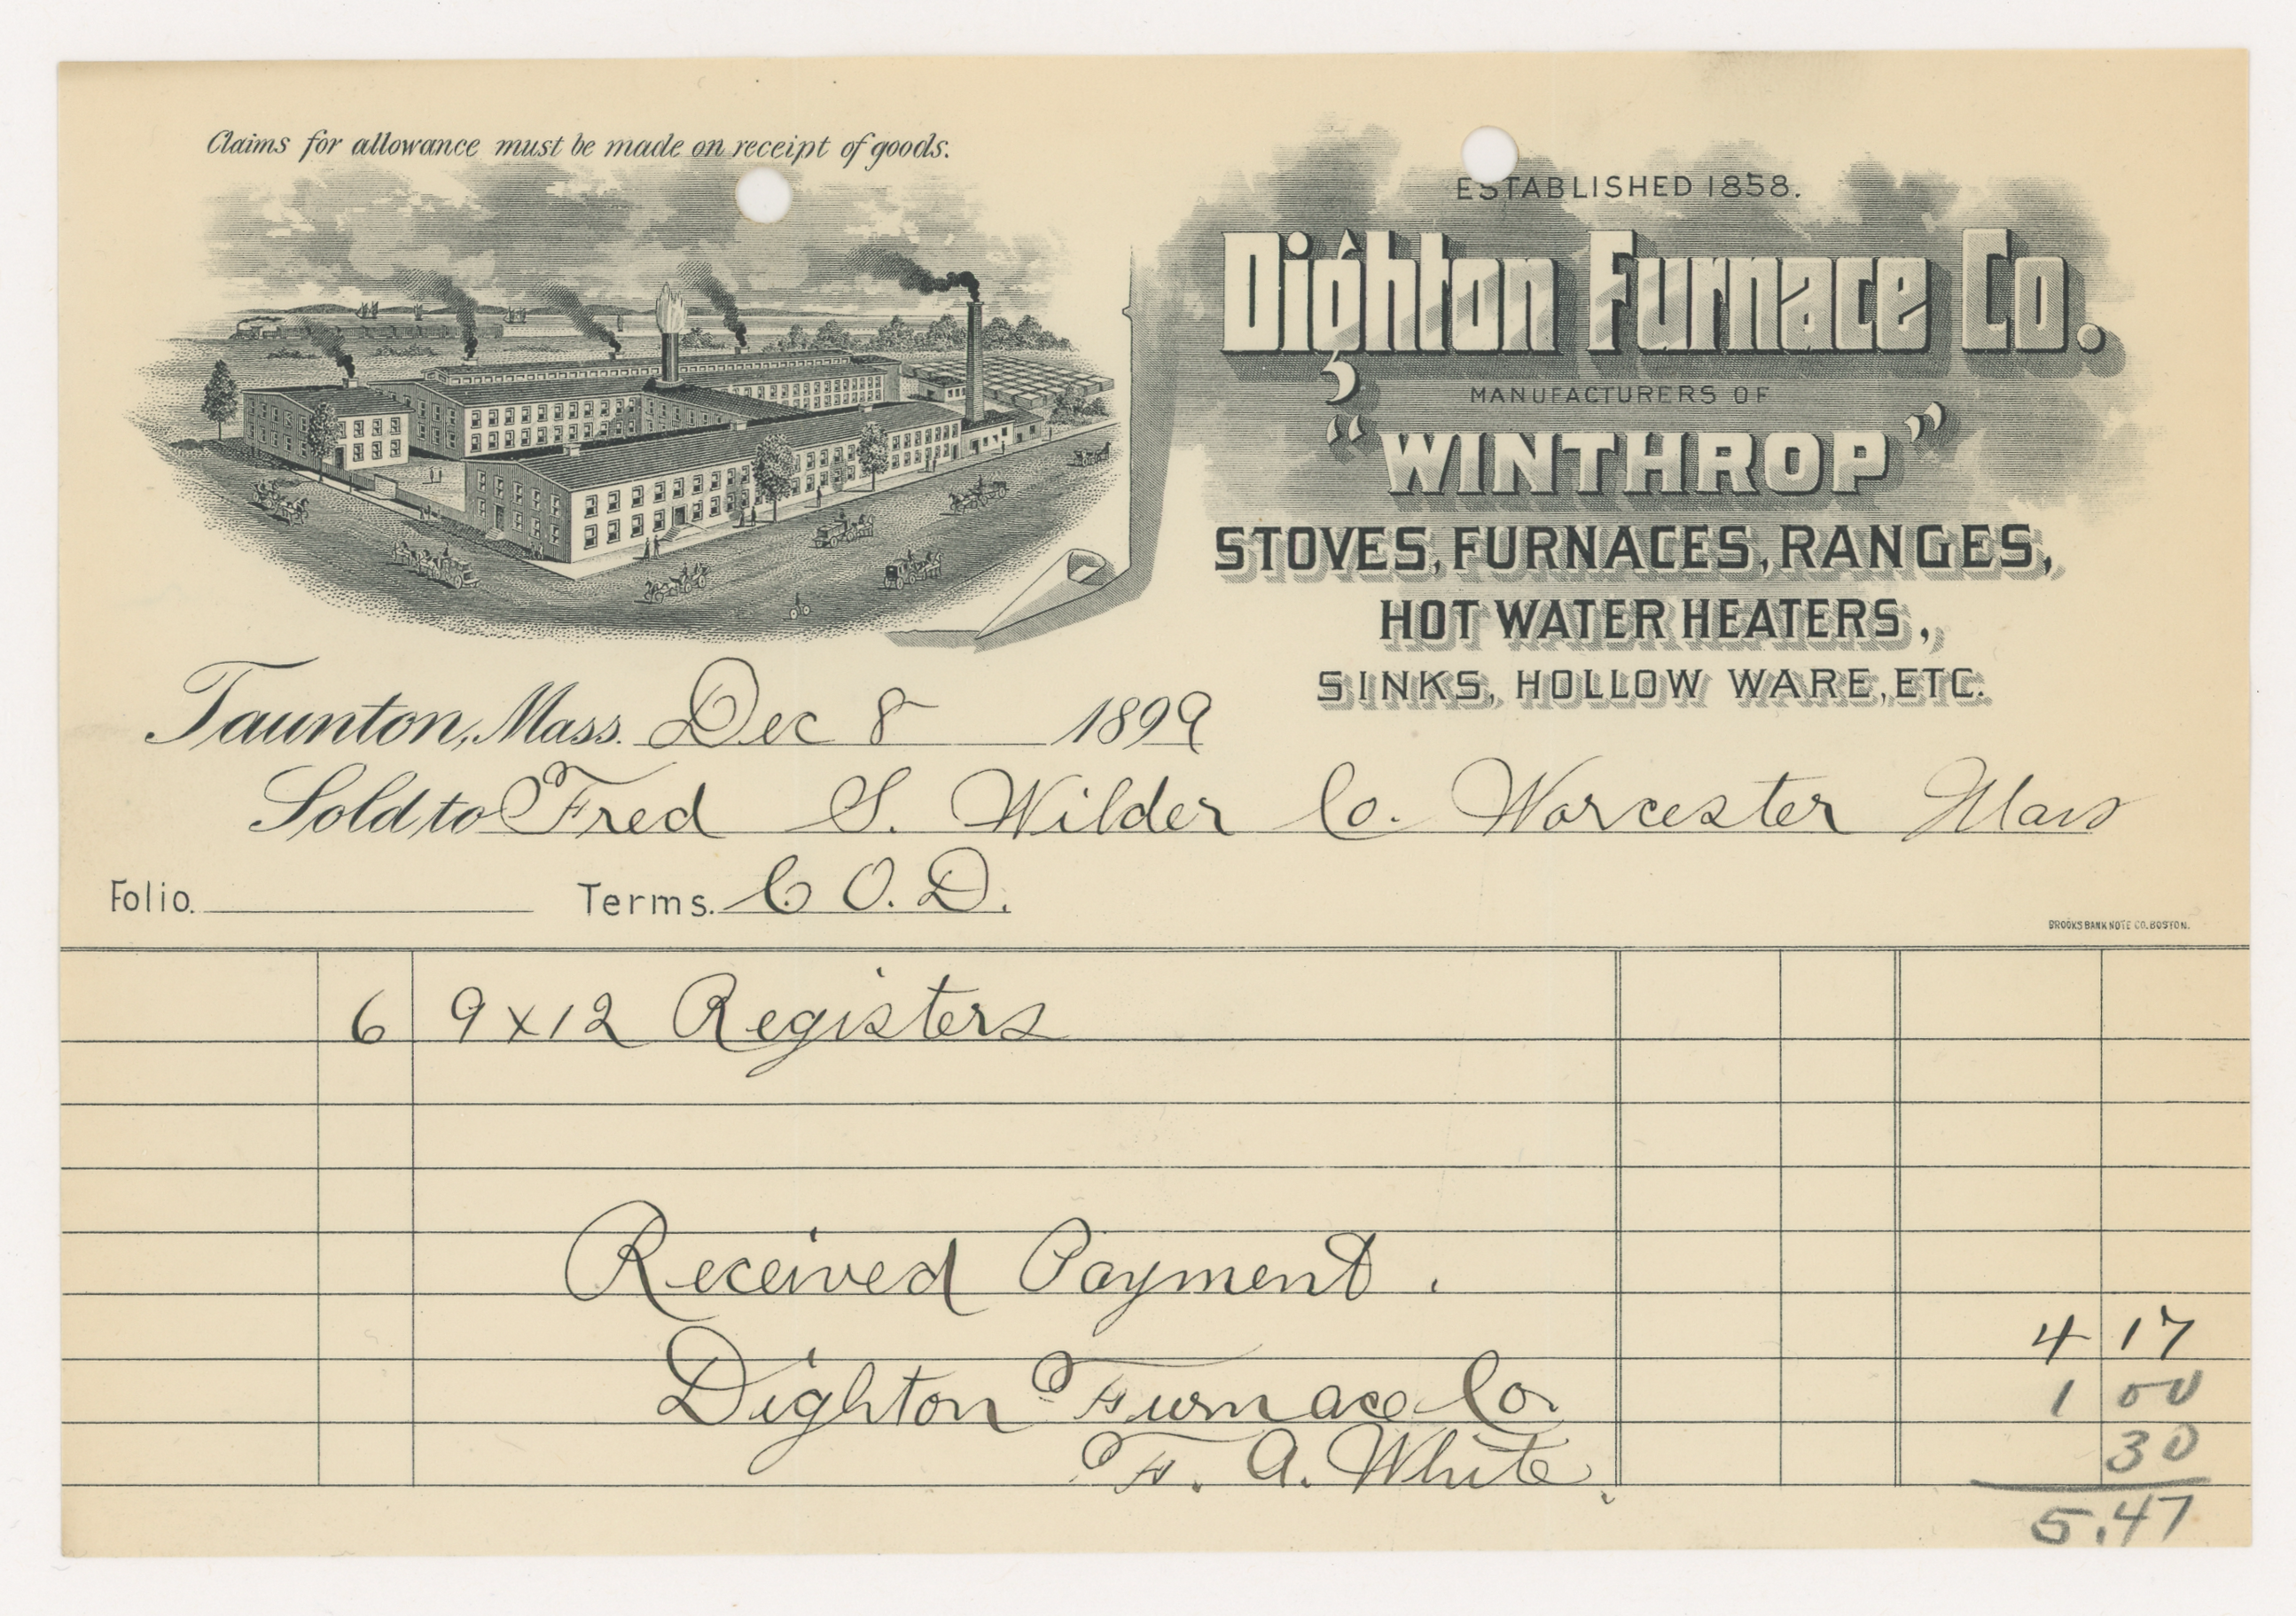 Claims for allowance must be made on receipt of goods.
ESTABLISHED 1858.
Dighton Furnace Co.
MANUFACTURERS OF
"WINTHROP"
STOVES, FURNACES, RANGES,
HOT WATER HEATERS,
SINKS, HOLLOW WARE, ETC.
Taunton, Mass. Dec 8 1899
Sold to Fred S. Wilder Co. Worcester Mass
Folio. Terms. C O. D.
BROOKS BANK NOTE CO. BOSTON.
6 9 x 12 Registers
Received Payment.
4 17
Dighton Furnace Co. 1 00
F. A. White. 30
5.47